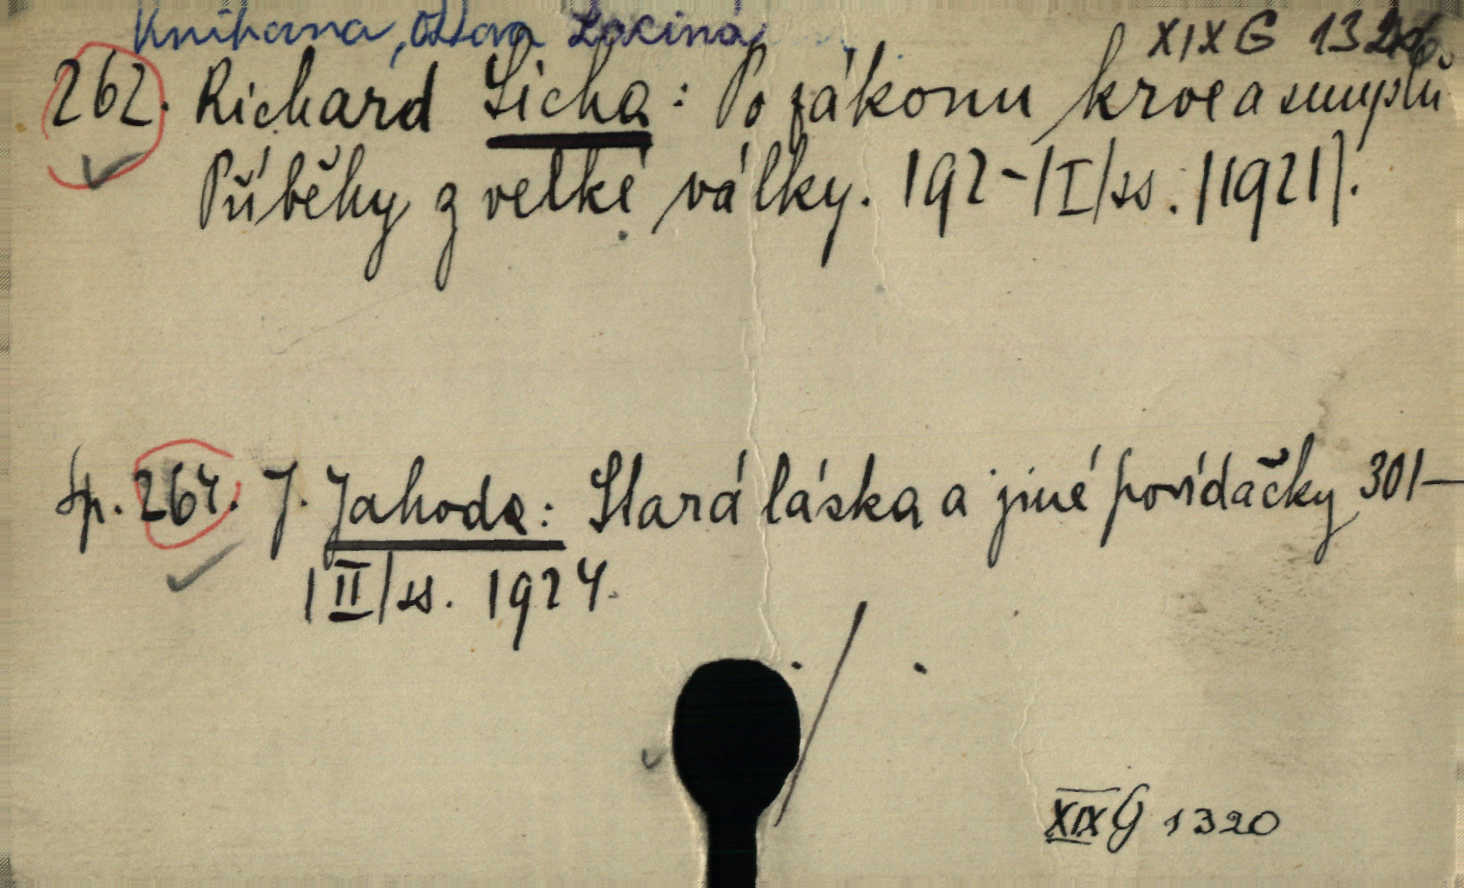 Knihovna, Ottova Laciná
XIX G 1320
262. Richard Lícha: Po zákonu krve a smyslů
Příběhy z velké války. 192-/I/ss. /1921/.
Sp. 264. J. Jahoda: Stará láska a jiné povídačky 301—
/II/ss. 1924.
XIX G 1320